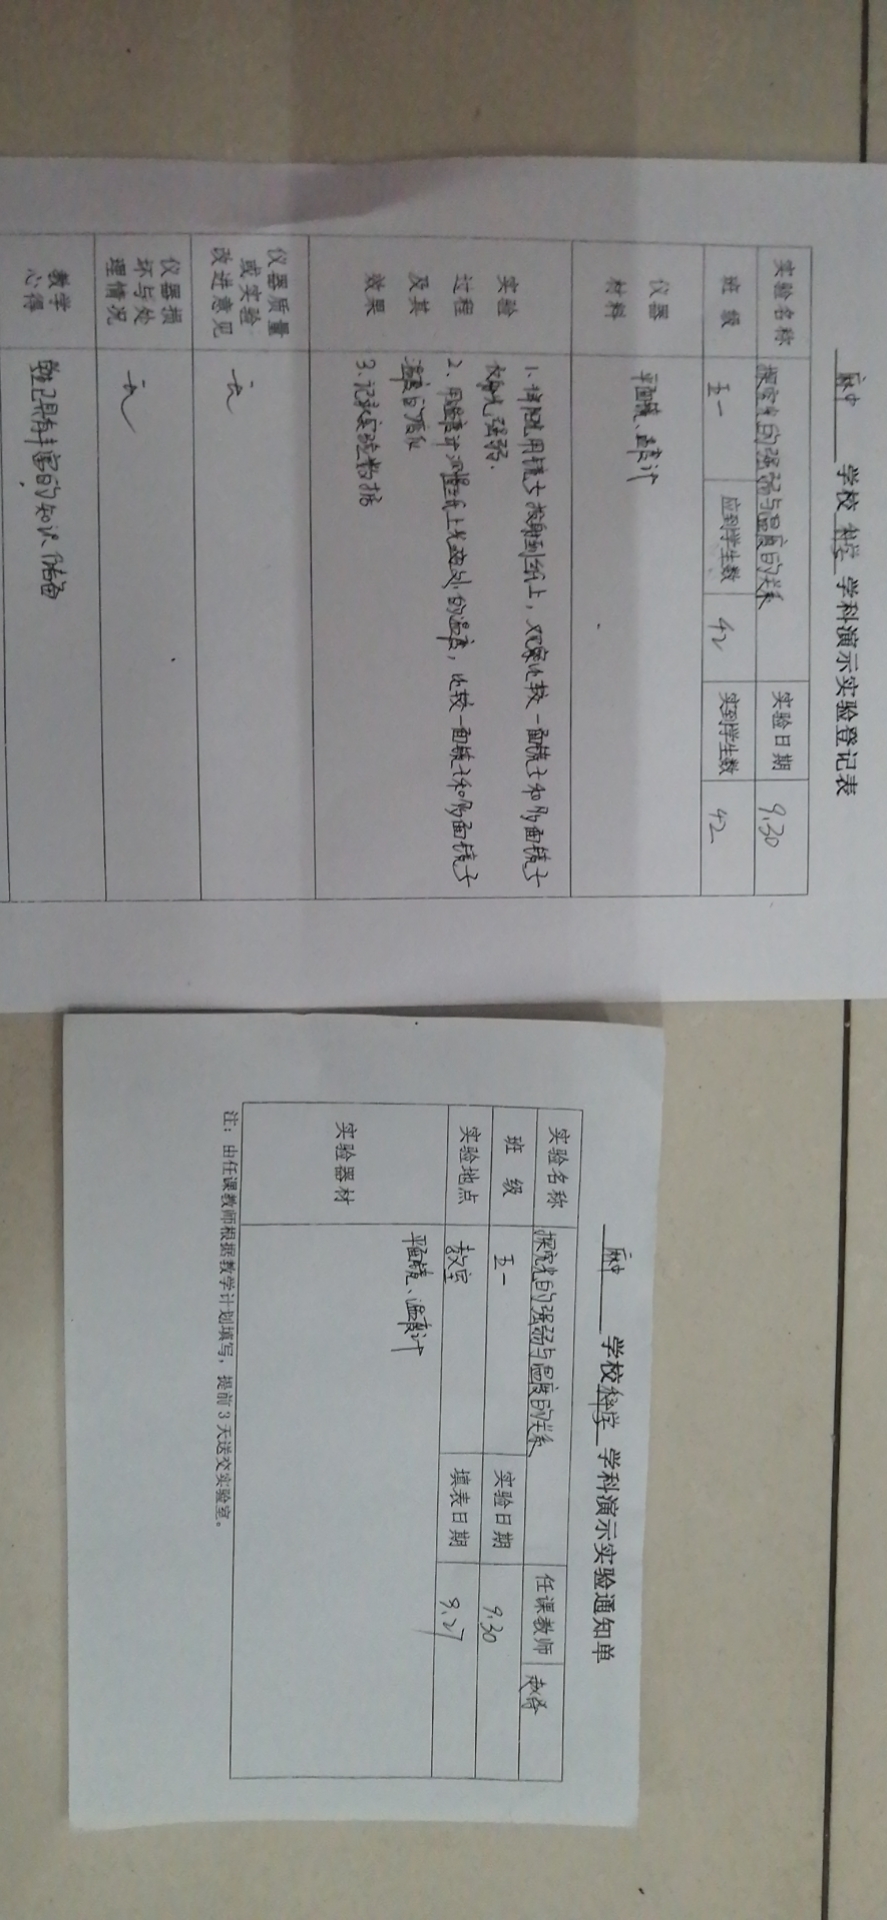 麻中 学校 科学 学科演示实验登记表
实验名称 探究光的强弱与温度的关系 实验日期 9.30
班 级 五一 应到学生数 42 实到学生数 42
仪器 材料 平面镜、温度计
实验 过程 及其 效果
1、将阳光用镜子反射到纸上,观察比较一面镜子和多面镜子
光强弱.
2、用温度计测量纸上光斑处的温度,比较一面镜子和多面镜子
温度的变化
3、记录实验数据
仪器质量 或实验 改进意见 无
仪器损 坏与处 理情况 无
教学 心得 学生已具有丰富的知识储备
麻中 学校 科学 学科演示实验通知单
实验名称 探究光的强弱与温度的关系 任课教师 赵
班 级 五一 实验日期 9.30
实验地点 教室 填表日期 9.27
实验器材 平面镜、温度计
注:由任课教师根据教学计划填写,提前3天送交实验室。